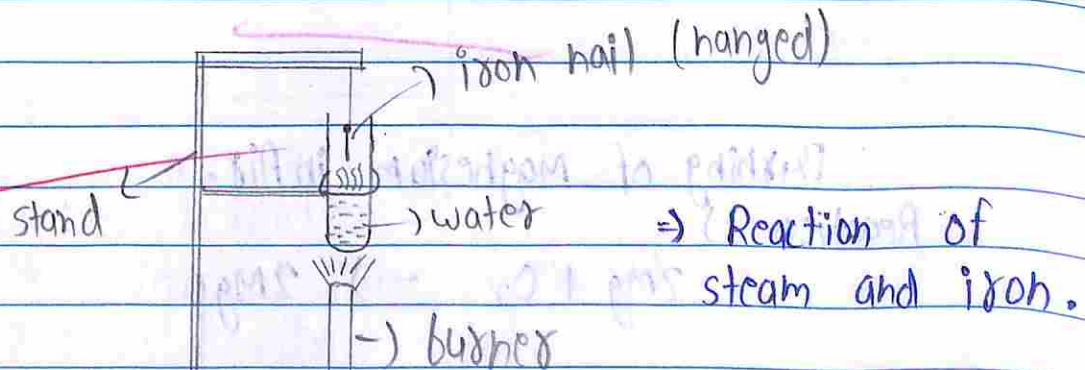 iron nail (hanged)
stand
water
⇒ Reaction of
steam and iron.
burner